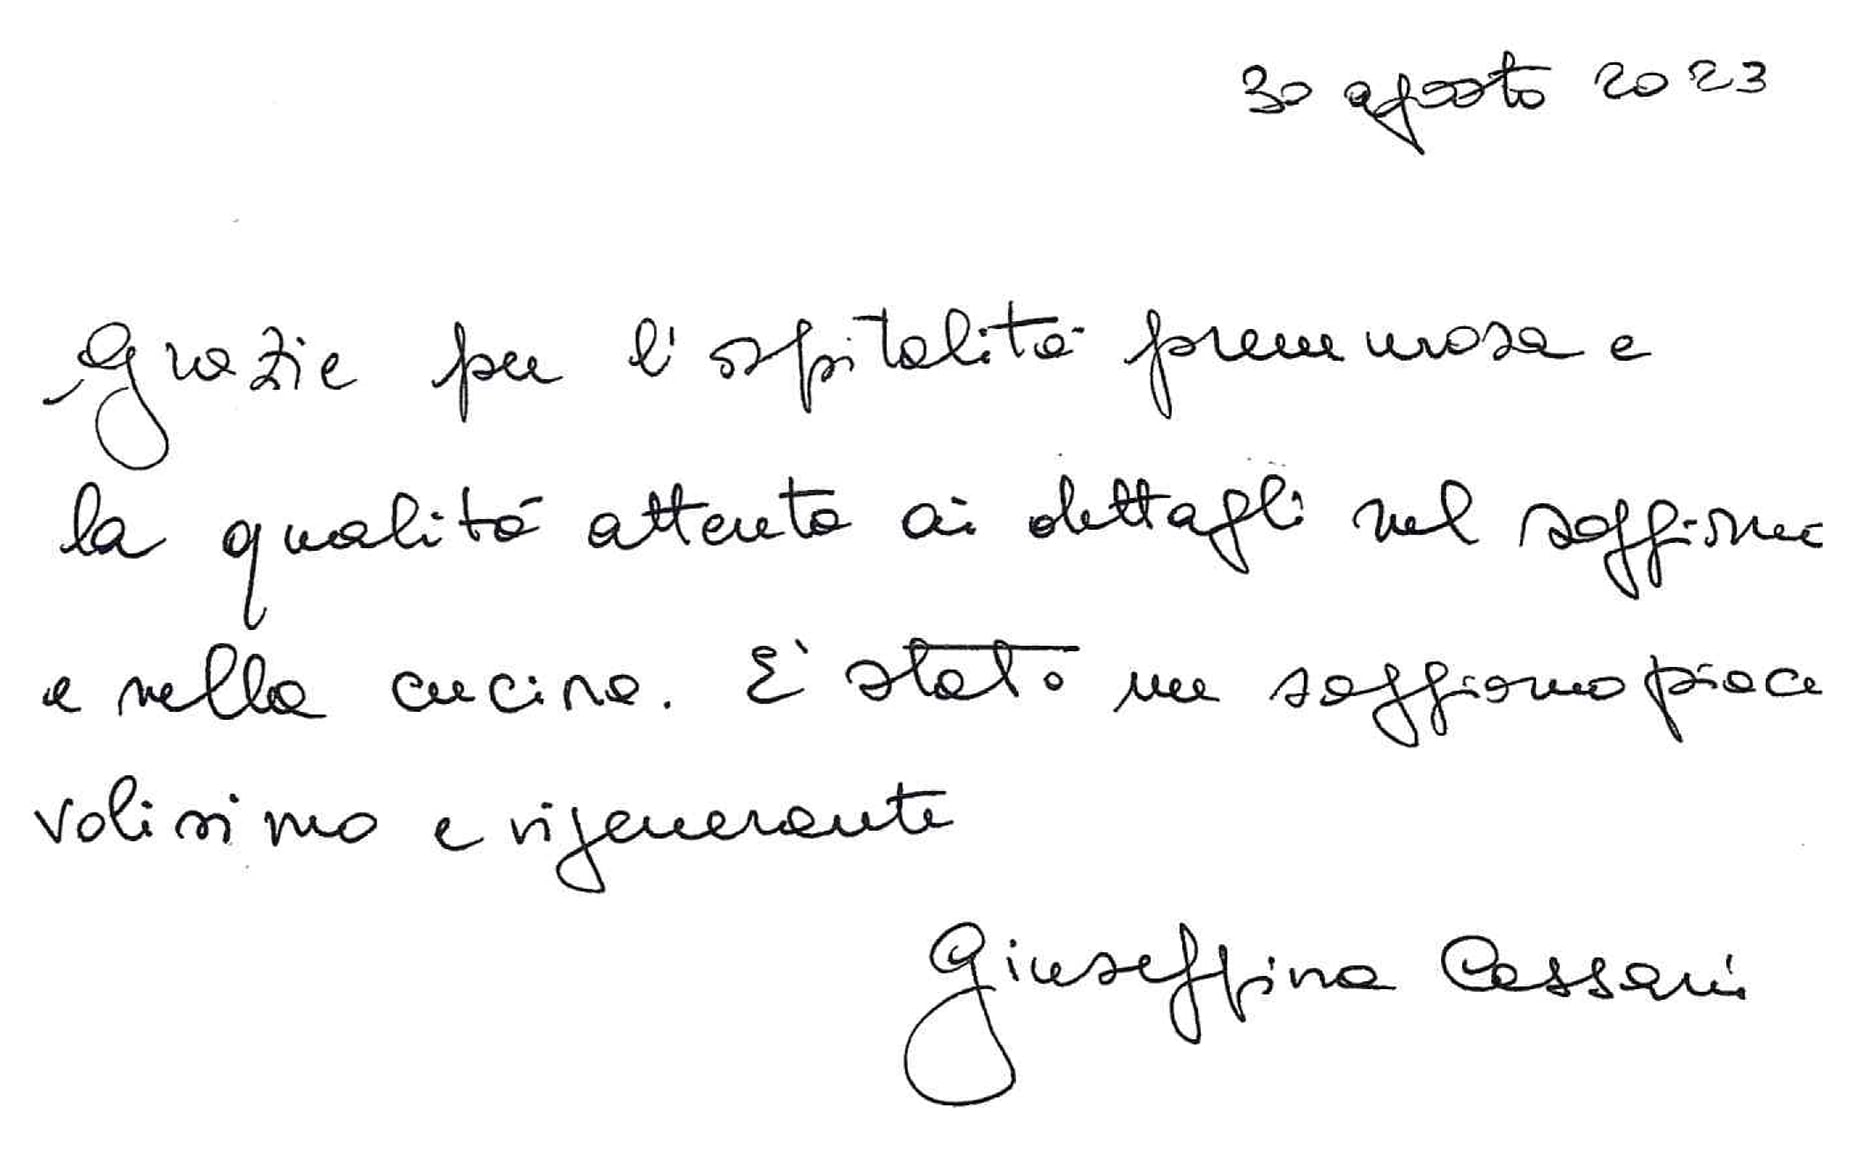 30 agosto 2023
Grazie per l'ospitalità premurosa e
la qualità attenta ai dettagli nel soggiorno
e nella cucina. E' stato un soggiorno piace
volissimo e rigenerante
Giuseppina Cassani